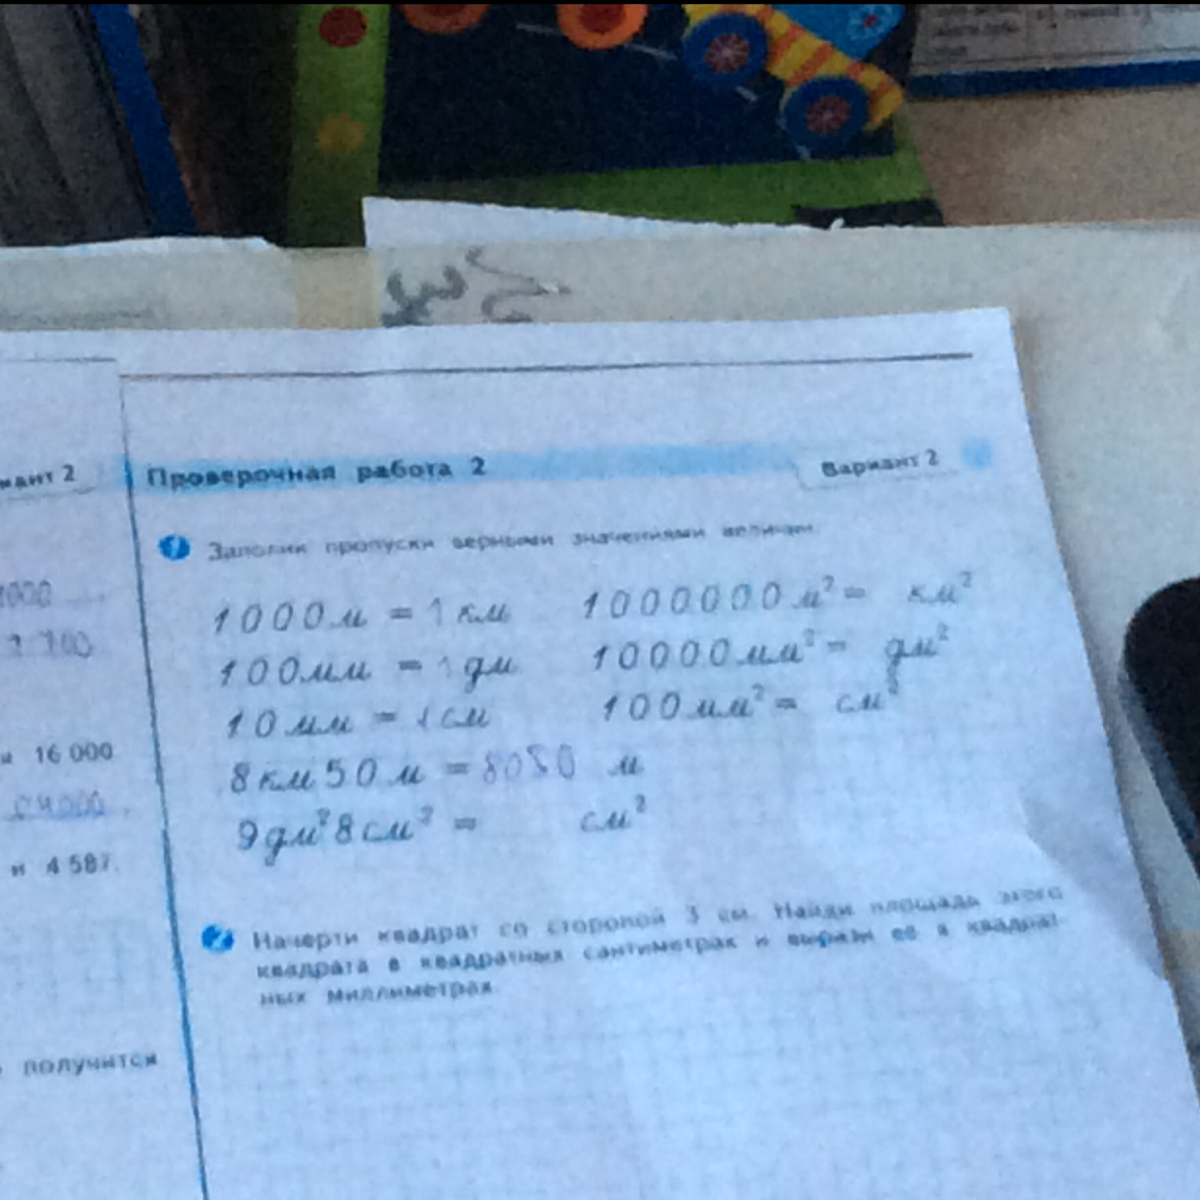 Вариант 2
Проверочная работа 2
1000
16 000
и 4 587.
получится
1 Заполни пропуски верными значениями величин.
1000 м = 1 км 1000000 м² = км²
100 мм = 1 дм 10000 мм² = дм²
10 мм = 1 см 100 мм² = см²
8 км 50 м = 8050 м
9 дм² 8 см² = см²
2 Начерти квадрат со стороной 3 см. Найди площадь этого
квадрата в квадратных сантиметрах и вырази её в квадрат-
ных миллиметрах.